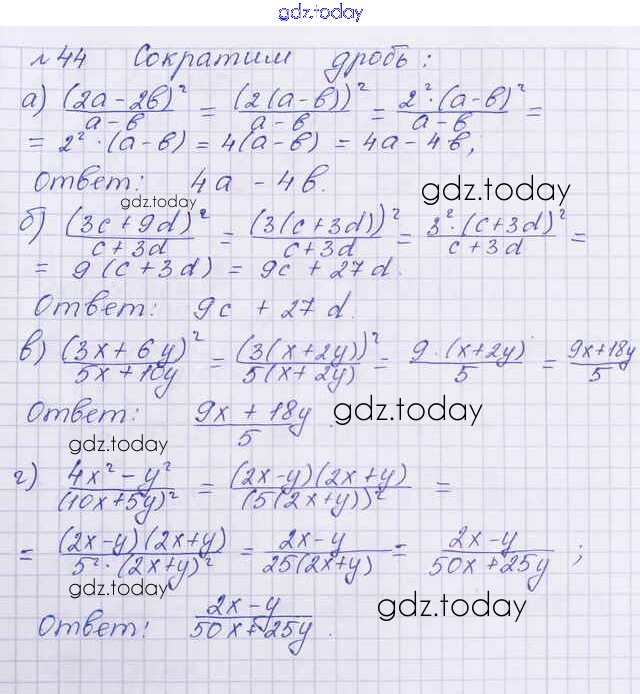 gdz.today
№44 Сократим дробь:
а) (2a-2b)²/(a-b) = (2(a-b))²/(a-b) = 2²·(a-b)²/(a-b) =
= 2²·(a-b) = 4(a-b) = 4a-4b;
gdz.today
Ответ: 4a-4b.
gdz.today
б) (3c+9d)²/(c+3d) = (3(c+3d))²/(c+3d) = 3²·(c+3d)²/(c+3d) =
= 9(c+3d) = 9c+27d.
Ответ: 9c+27d.
в) (3x+6y)²/(5x+10y) = (3(x+2y))²/(5(x+2y)) = 9·(x+2y)/5 = (9x+18y)/5
Ответ: (9x+18y)/5.
gdz.today
gdz.today
г) (4x²-y²)/(10x+5y)² = (2x-y)(2x+y)/(5(2x+y))² =
= (2x-y)(2x+y)/(5²·(2x+y)²) = (2x-y)/(25(2x+y)) = (2x-y)/(50x+25y);
gdz.today
gdz.today
Ответ: (2x-y)/(50x+25y).